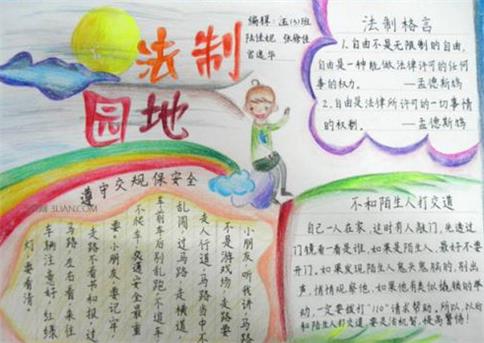 法制
园地
陆佳妮
法制格言
1.自由不是无限制的自由,
自由是一种能做法律许可的任何
事的权力。 —孟德斯鸠
2.自由是法律所许可的一切事情
的权利。 —孟德斯鸠
遵守交规保安全
3LIAN.COM
小朋友,听我讲,马路
不是游戏场,走路
走人行道,马路当中不
乱闯,过马路,走横道,
车前车后别乱跑,不追车
不爬车,交通安全最重
要,小朋友,要记牢,
走路不看书和报,过
马路左右看,来往
车辆注意好,红绿
灯,要看清。
不和陌生人打交道
自己一人在家,这时有人敲门,先透过
门镜看一看是谁,如果是陌生人,最好不要
开门。如果发现陌生人鬼头鬼脑的,别出
声,悄悄观察他,如果他有类似撬锁的举
动,一定要拨打"110"请求帮助。所以,以后
和陌生人打交道,要灵活机智,提高警惕!